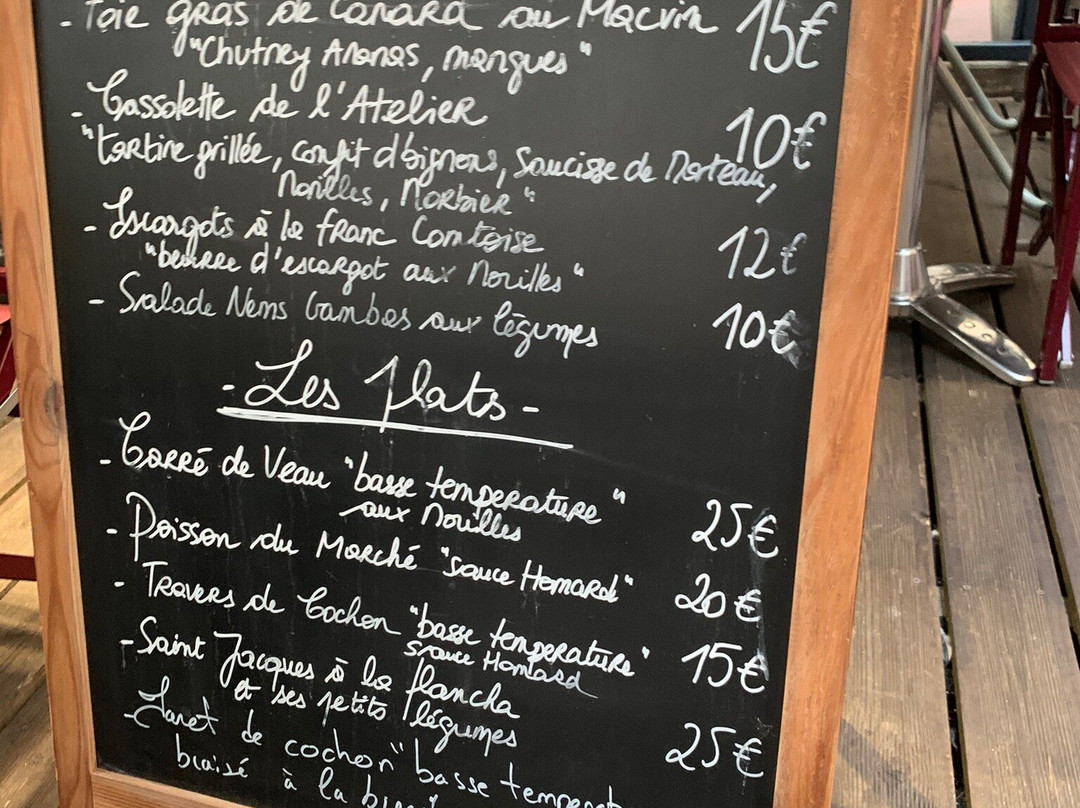 - Foie gras de Canard au Macvin 15€
"Chutney Ananas, mangues"
- Cassolette de l'Atelier 10€
"tartine grillée, confit d'oignons, Saucisse de Morteau,
Morilles, Morbier"
- Escargots à la franc Comtoise 12€
"beurre d'escargot aux Morilles"
- Salade Nems Gambas aux légumes 10€
- Les plats -
- Carré de Veau "basse temperature"
aux Morilles 25€
- Poisson du Marché "sauce Homard" 20€
- Travers de Cochon "basse temperature" 15€
sauce Homard
- Saint Jacques à la plancha
et ses petits légumes 25€
- Jaret de cochon "basse temperat
braisé à la